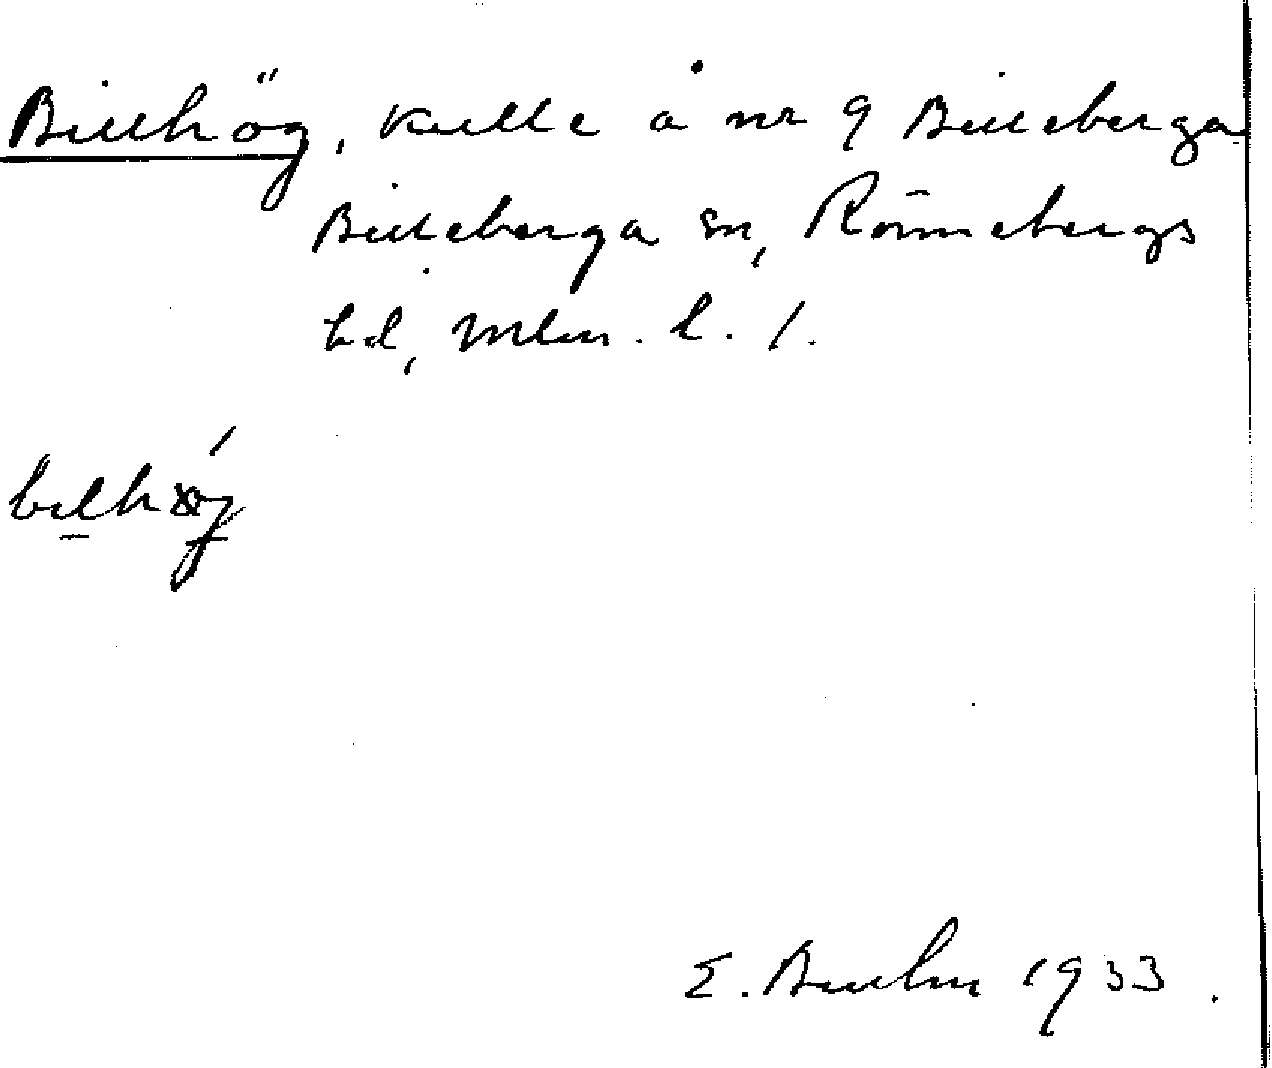 Billhög, kulle å nr 9 Billeberga
Billeberga sn, Rönnebergs
hd, Mlm. l. 1.
E. 1933.